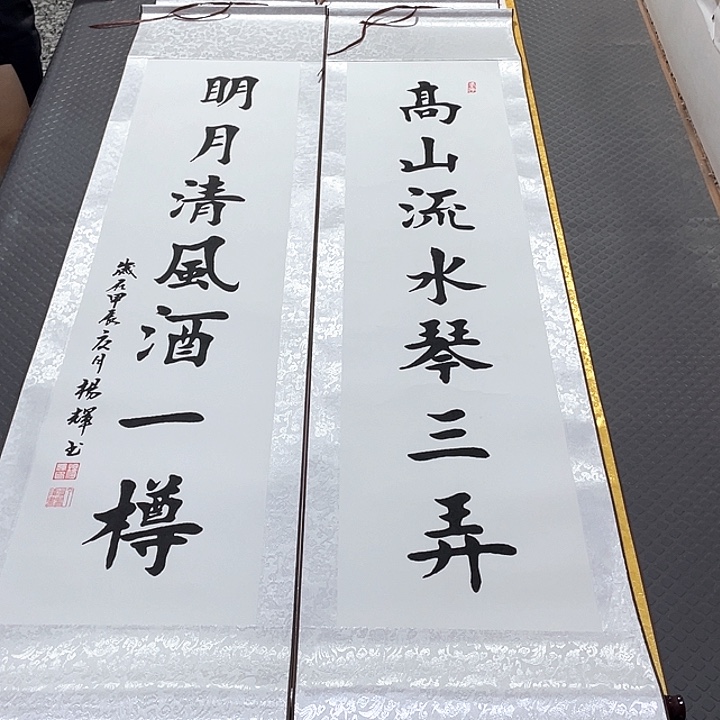 高山流水琴三弄
明月清風酒一樽
歲在甲辰 月楊輝書